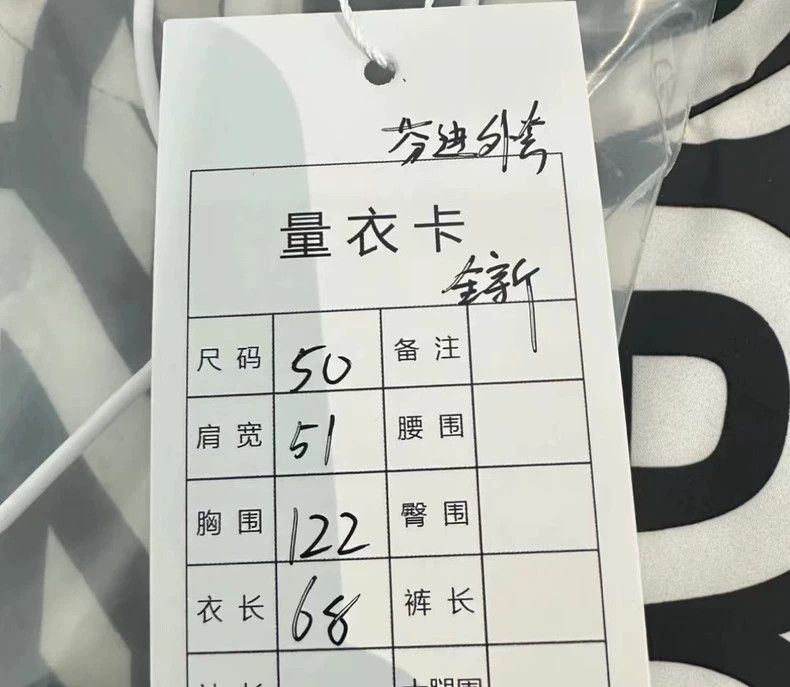 芬迪外套
量衣卡
全新
尺码 50 备注
肩宽 51 腰围
胸围 122 臀围
衣长 68 裤长